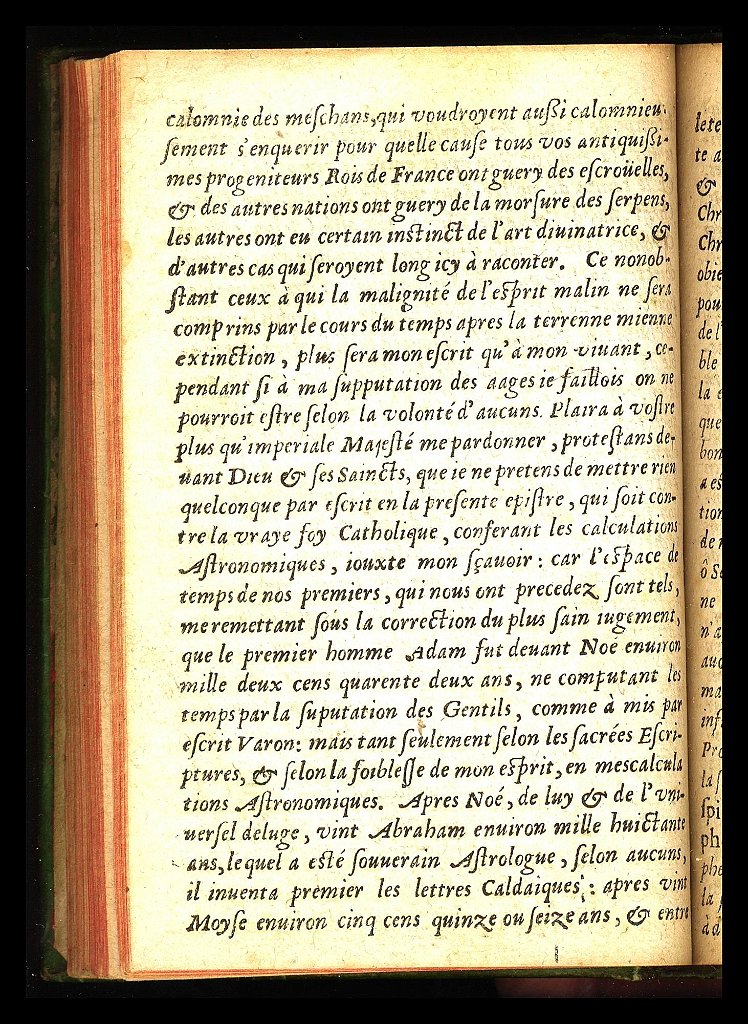 calomnie des meſchans, qui voudroyent auſſi calomnieu-
ſement s'enquerir pour quelle cauſe tous vos antiquiſſi-
mes progeniteurs Rois de France ont guery des eſcroüelles,
& des autres nations ont guery de la morſure des ſerpens,
les autres ont eu certain inſtinct de l'art diuinatrice, &
d'autres cas qui ſeroyent long icy à raconter. Ce nonob-
ſtant ceux à qui la malignité de l'eſprit malin ne ſera
comprins par le cours du temps apres la terrenne mienne
extinction, plus ſera mon eſcrit qu'à mon viuant, ce-
pendant ſi à ma ſupputation des aages ie faillois on ne
pourroit eſtre ſelon la volonté d'aucuns. Plaira à voſtre
plus qu'imperiale Majeſté me pardonner, proteſtans de-
uant Dieu & ſes Saincts, que ie ne pretens de mettre rien
quelconque par eſcrit en la preſente epiſtre, qui ſoit con-
tre la vraye foy Catholique, conferant les calculations
Aſtronomiques, iouxte mon ſçauoir: car l'eſpace de
temps de nos premiers, qui nous ont precedez ſont tels,
me remettant ſous la correction du plus ſain iugement,
que le premier homme Adam fut deuant Noé enuiron
mille deux cens quarente deux ans, ne computant les
temps par la ſuputation des Gentils, comme à mis par
eſcrit Varon: mais tant ſeulement ſelon les ſacrées Eſcri-
ptures, & ſelon la foibleſſe de mon eſprit, en mes calcula
tions Aſtronomiques. Apres Noé, de luy & de l'vni-
uerſel deluge, vint Abraham enuiron mille huictante
ans, lequel a eſté ſouuerain Aſtrologue, ſelon aucuns,
il inuenta premier les lettres Caldaiques: apres vint
Moyſe enuiron cinq cens quinze ou ſeize ans, & entre